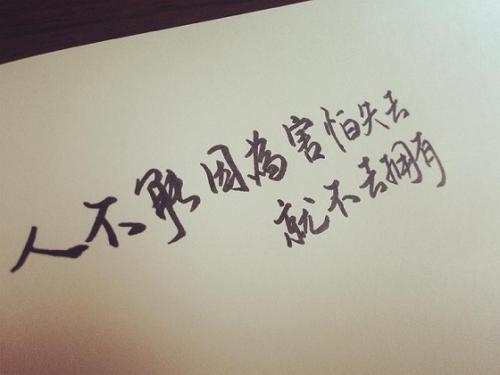 人不能因為害怕失去
就不去擁有